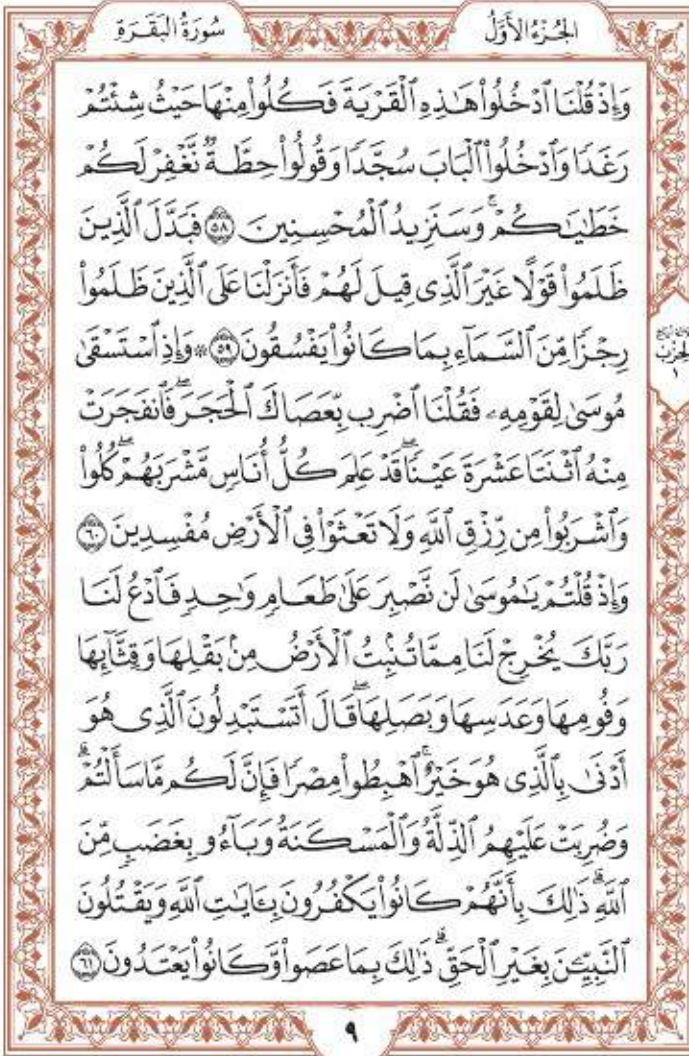 الجُزْءُ الأَوَّلُ
سُورَةُ البَقَرَةِ
وَإِذْ قُلْنَا ٱدْخُلُوا۟ هَـٰذِهِ ٱلْقَرْيَةَ فَكُلُوا۟ مِنْهَا حَيْثُ شِئْتُمْ
رَغَدًا وَٱدْخُلُوا۟ ٱلْبَابَ سُجَّدًا وَقُولُوا۟ حِطَّةٌ نَّغْفِرْ لَكُمْ
خَطَـٰيَـٰكُمْ ۚ وَسَنَزِيدُ ٱلْمُحْسِنِينَ ٥٨ فَبَدَّلَ ٱلَّذِينَ
ظَلَمُوا۟ قَوْلًا غَيْرَ ٱلَّذِى قِيلَ لَهُمْ فَأَنزَلْنَا عَلَى ٱلَّذِينَ ظَلَمُوا۟
رِجْزًا مِّنَ ٱلسَّمَآءِ بِمَا كَانُوا۟ يَفْسُقُونَ ٥٩ ۞ وَإِذِ ٱسْتَسْقَىٰ
مُوسَىٰ لِقَوْمِهِۦ فَقُلْنَا ٱضْرِب بِّعَصَاكَ ٱلْحَجَرَ ۖ فَٱنفَجَرَتْ
مِنْهُ ٱثْنَتَا عَشْرَةَ عَيْنًا ۖ قَدْ عَلِمَ كُلُّ أُنَاسٍ مَّشْرَبَهُمْ ۖ كُلُوا۟
وَٱشْرَبُوا۟ مِن رِّزْقِ ٱللَّهِ وَلَا تَعْثَوْا۟ فِى ٱلْأَرْضِ مُفْسِدِينَ ٦٠
وَإِذْ قُلْتُمْ يَـٰمُوسَىٰ لَن نَّصْبِرَ عَلَىٰ طَعَامٍ وَٰحِدٍ فَٱدْعُ لَنَا
رَبَّكَ يُخْرِجْ لَنَا مِمَّا تُنۢبِتُ ٱلْأَرْضُ مِنۢ بَقْلِهَا وَقِثَّآئِهَا
وَفُومِهَا وَعَدَسِهَا وَبَصَلِهَا ۖ قَالَ أَتَسْتَبْدِلُونَ ٱلَّذِى هُوَ
أَدْنَىٰ بِٱلَّذِى هُوَ خَيْرٌ ۚ ٱهْبِطُوا۟ مِصْرًا فَإِنَّ لَكُم مَّا سَأَلْتُمْ ۗ
وَضُرِبَتْ عَلَيْهِمُ ٱلذِّلَّةُ وَٱلْمَسْكَنَةُ وَبَآءُو بِغَضَبٍ مِّنَ
ٱللَّهِ ۗ ذَٰلِكَ بِأَنَّهُمْ كَانُوا۟ يَكْفُرُونَ بِـَٔايَـٰتِ ٱللَّهِ وَيَقْتُلُونَ
ٱلنَّبِيِّـۧنَ بِغَيْرِ ٱلْحَقِّ ۗ ذَٰلِكَ بِمَا عَصَوا۟ وَّكَانُوا۟ يَعْتَدُونَ ٦١
الحِزْب
١
٩